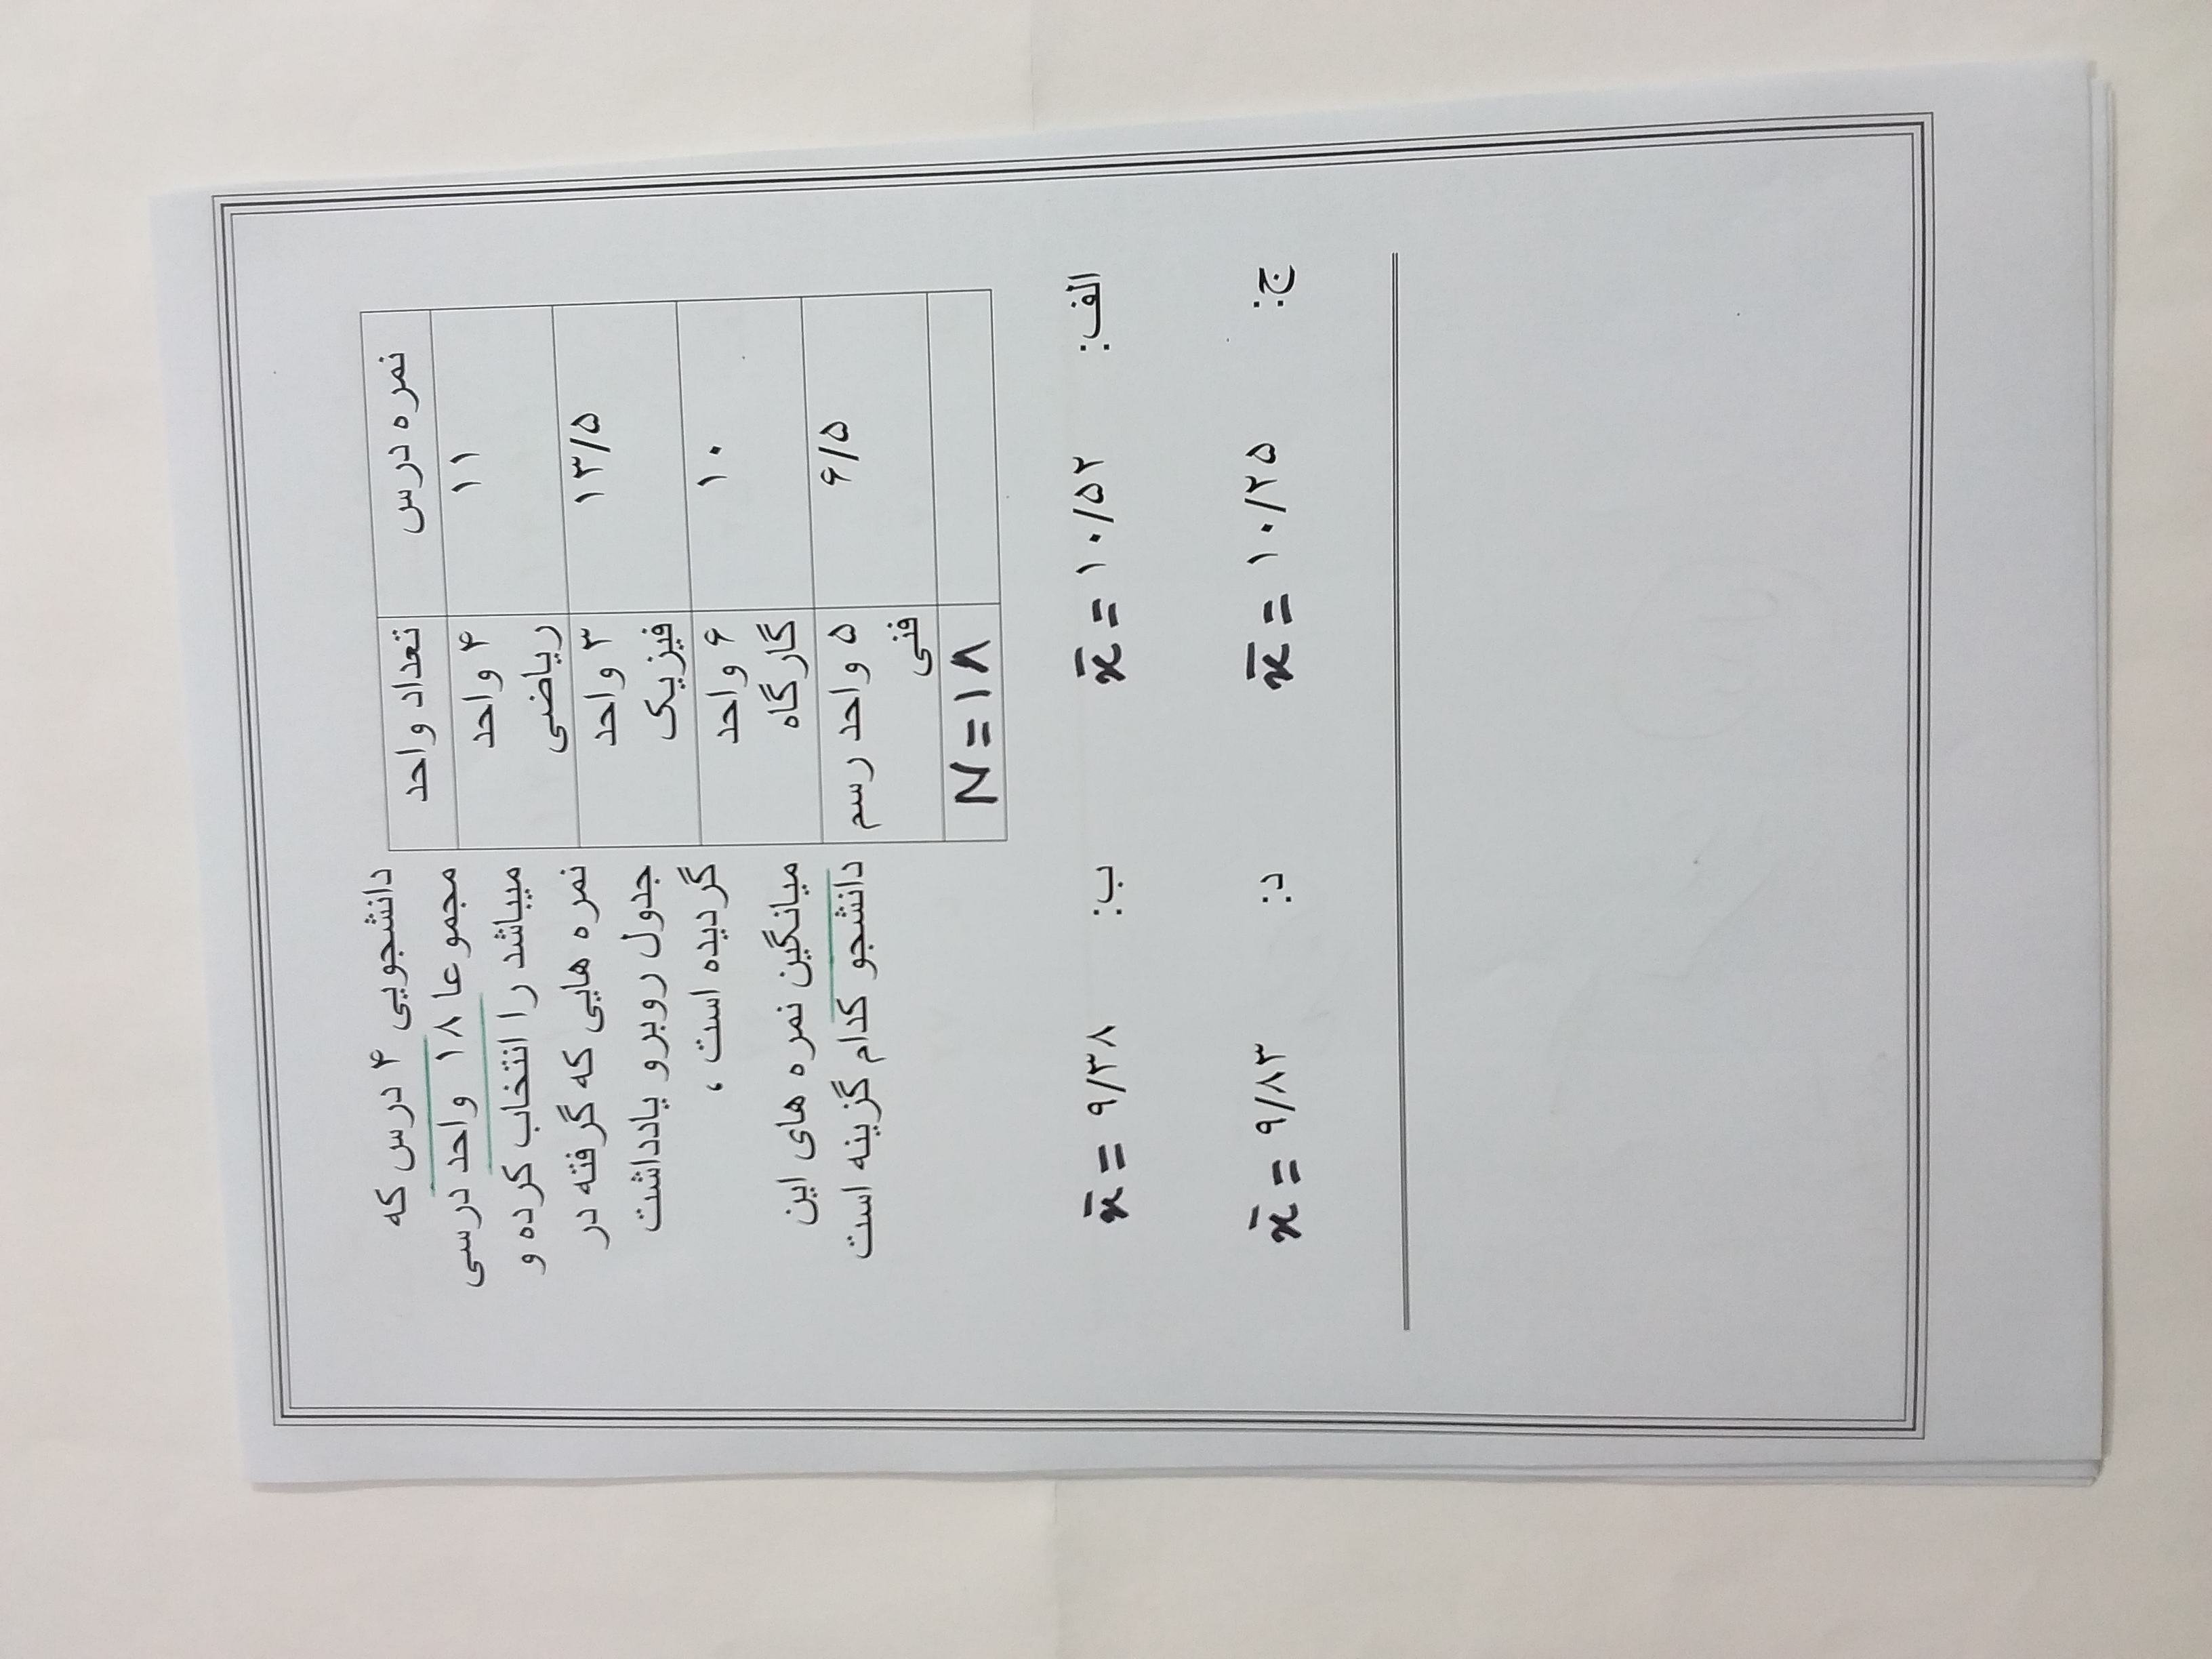 نمره درس
تعداد واحد
۱۱
۴ واحد
ریاضی
۱۳/۵
۳ واحد
فیزیک
۱۰
۶ واحد
گارگاه
۶/۵
۵ واحد رسم
فنی
N=۱۸
دانشجویی ۴ درس که
مجموعا ۱۸ واحد درسی
میباشد را انتخاب کرده و
نمره هایی که گرفته در
جدول روبرو یادداشت
گردیده است ،
میانگین نمره های این
دانشجو کدام گزینه است
الف: x̄ = ۱۰/۵۲
ب: x̄ = ۹/۳۸
ج: x̄ = ۱۰/۲۵
د: x̄ = ۹/۸۳